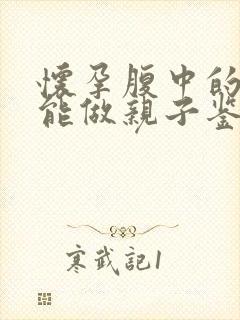 懷孕腹中的
能做親子鉴
寒武記1